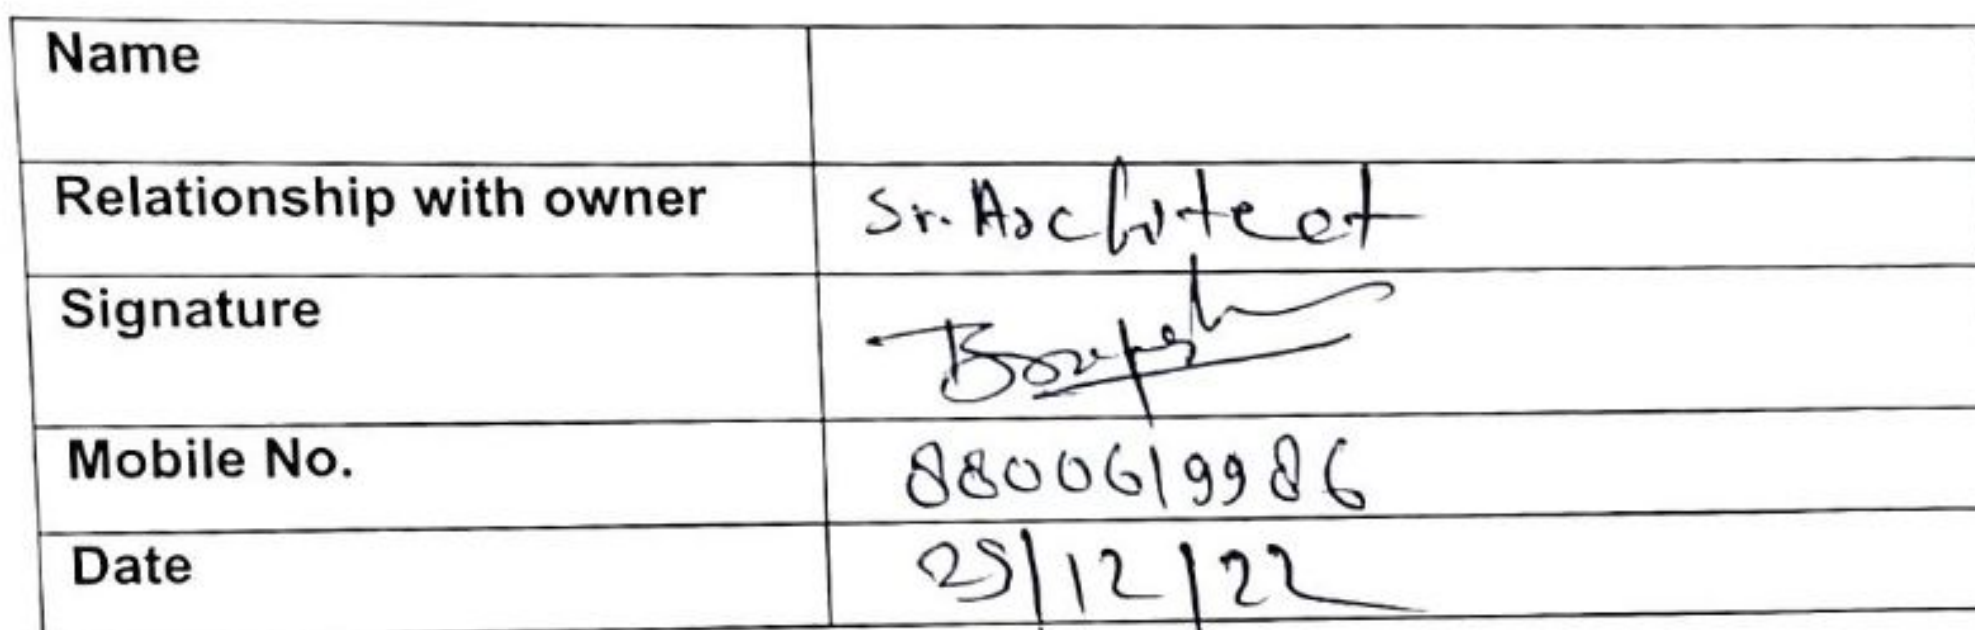 Name
Relationship with owner Sr. Architect
Signature
Mobile No. 8800619986
Date 29/12/22